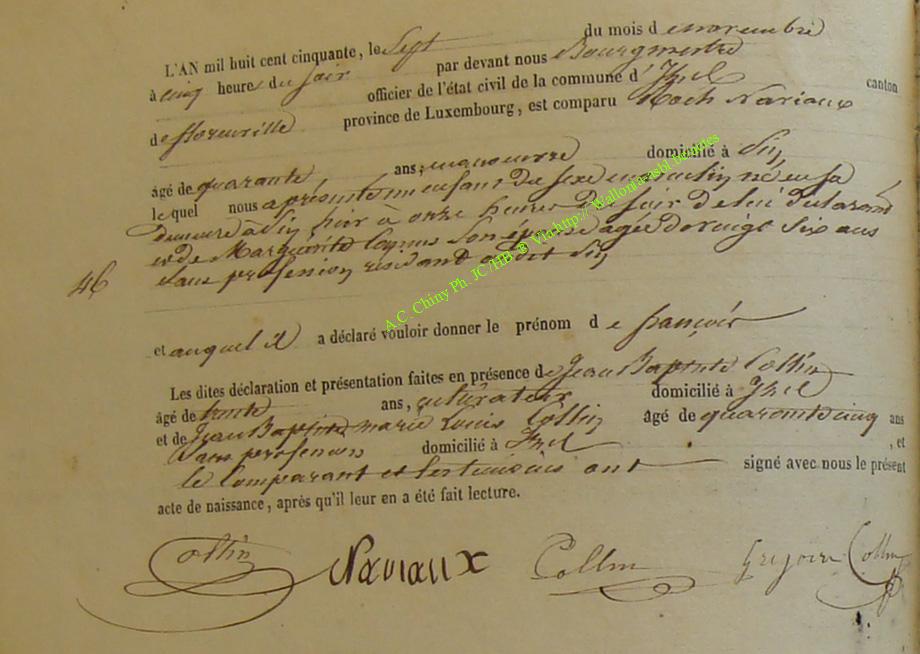 L'AN mil huit cent cinquante, le Sept du mois d e novembre
à cinq heures du soir par devant nous Bourgmestre
officier de l'état civil de la commune d' Izel canton
de florenville province de Luxembourg, est comparu Roch Naviaux
âgé de quarante ans, domicilié à Pin
lequel nous a présenté un enfant du sexe masculin né en sa
demeure à Pin hier a onze heures du soir de lui déclarant
et de Marguerite son épouse agée de vingt six ans
Sans profession résidant audit Pin
46
et auquel il a déclaré vouloir donner le prénom d e françois
Les dites déclaration et présentation faites en présence de Jean Baptiste Collin
âgé de trente ans, cultivateur domicilié à Izel
et de Jean Baptiste marie Louis Collin âgé de quarante cinq ans
Sans profession domicilié à Izel , et
le Comparant et les témoins ont signé avec nous le présent
acte de naissance, après qu'il leur en a été fait lecture.
Collin Naviaux Collin Grégoire Collin
A.C. Chiny Ph. JC/HB ® Via:http://Wallonia asbl bénévoles